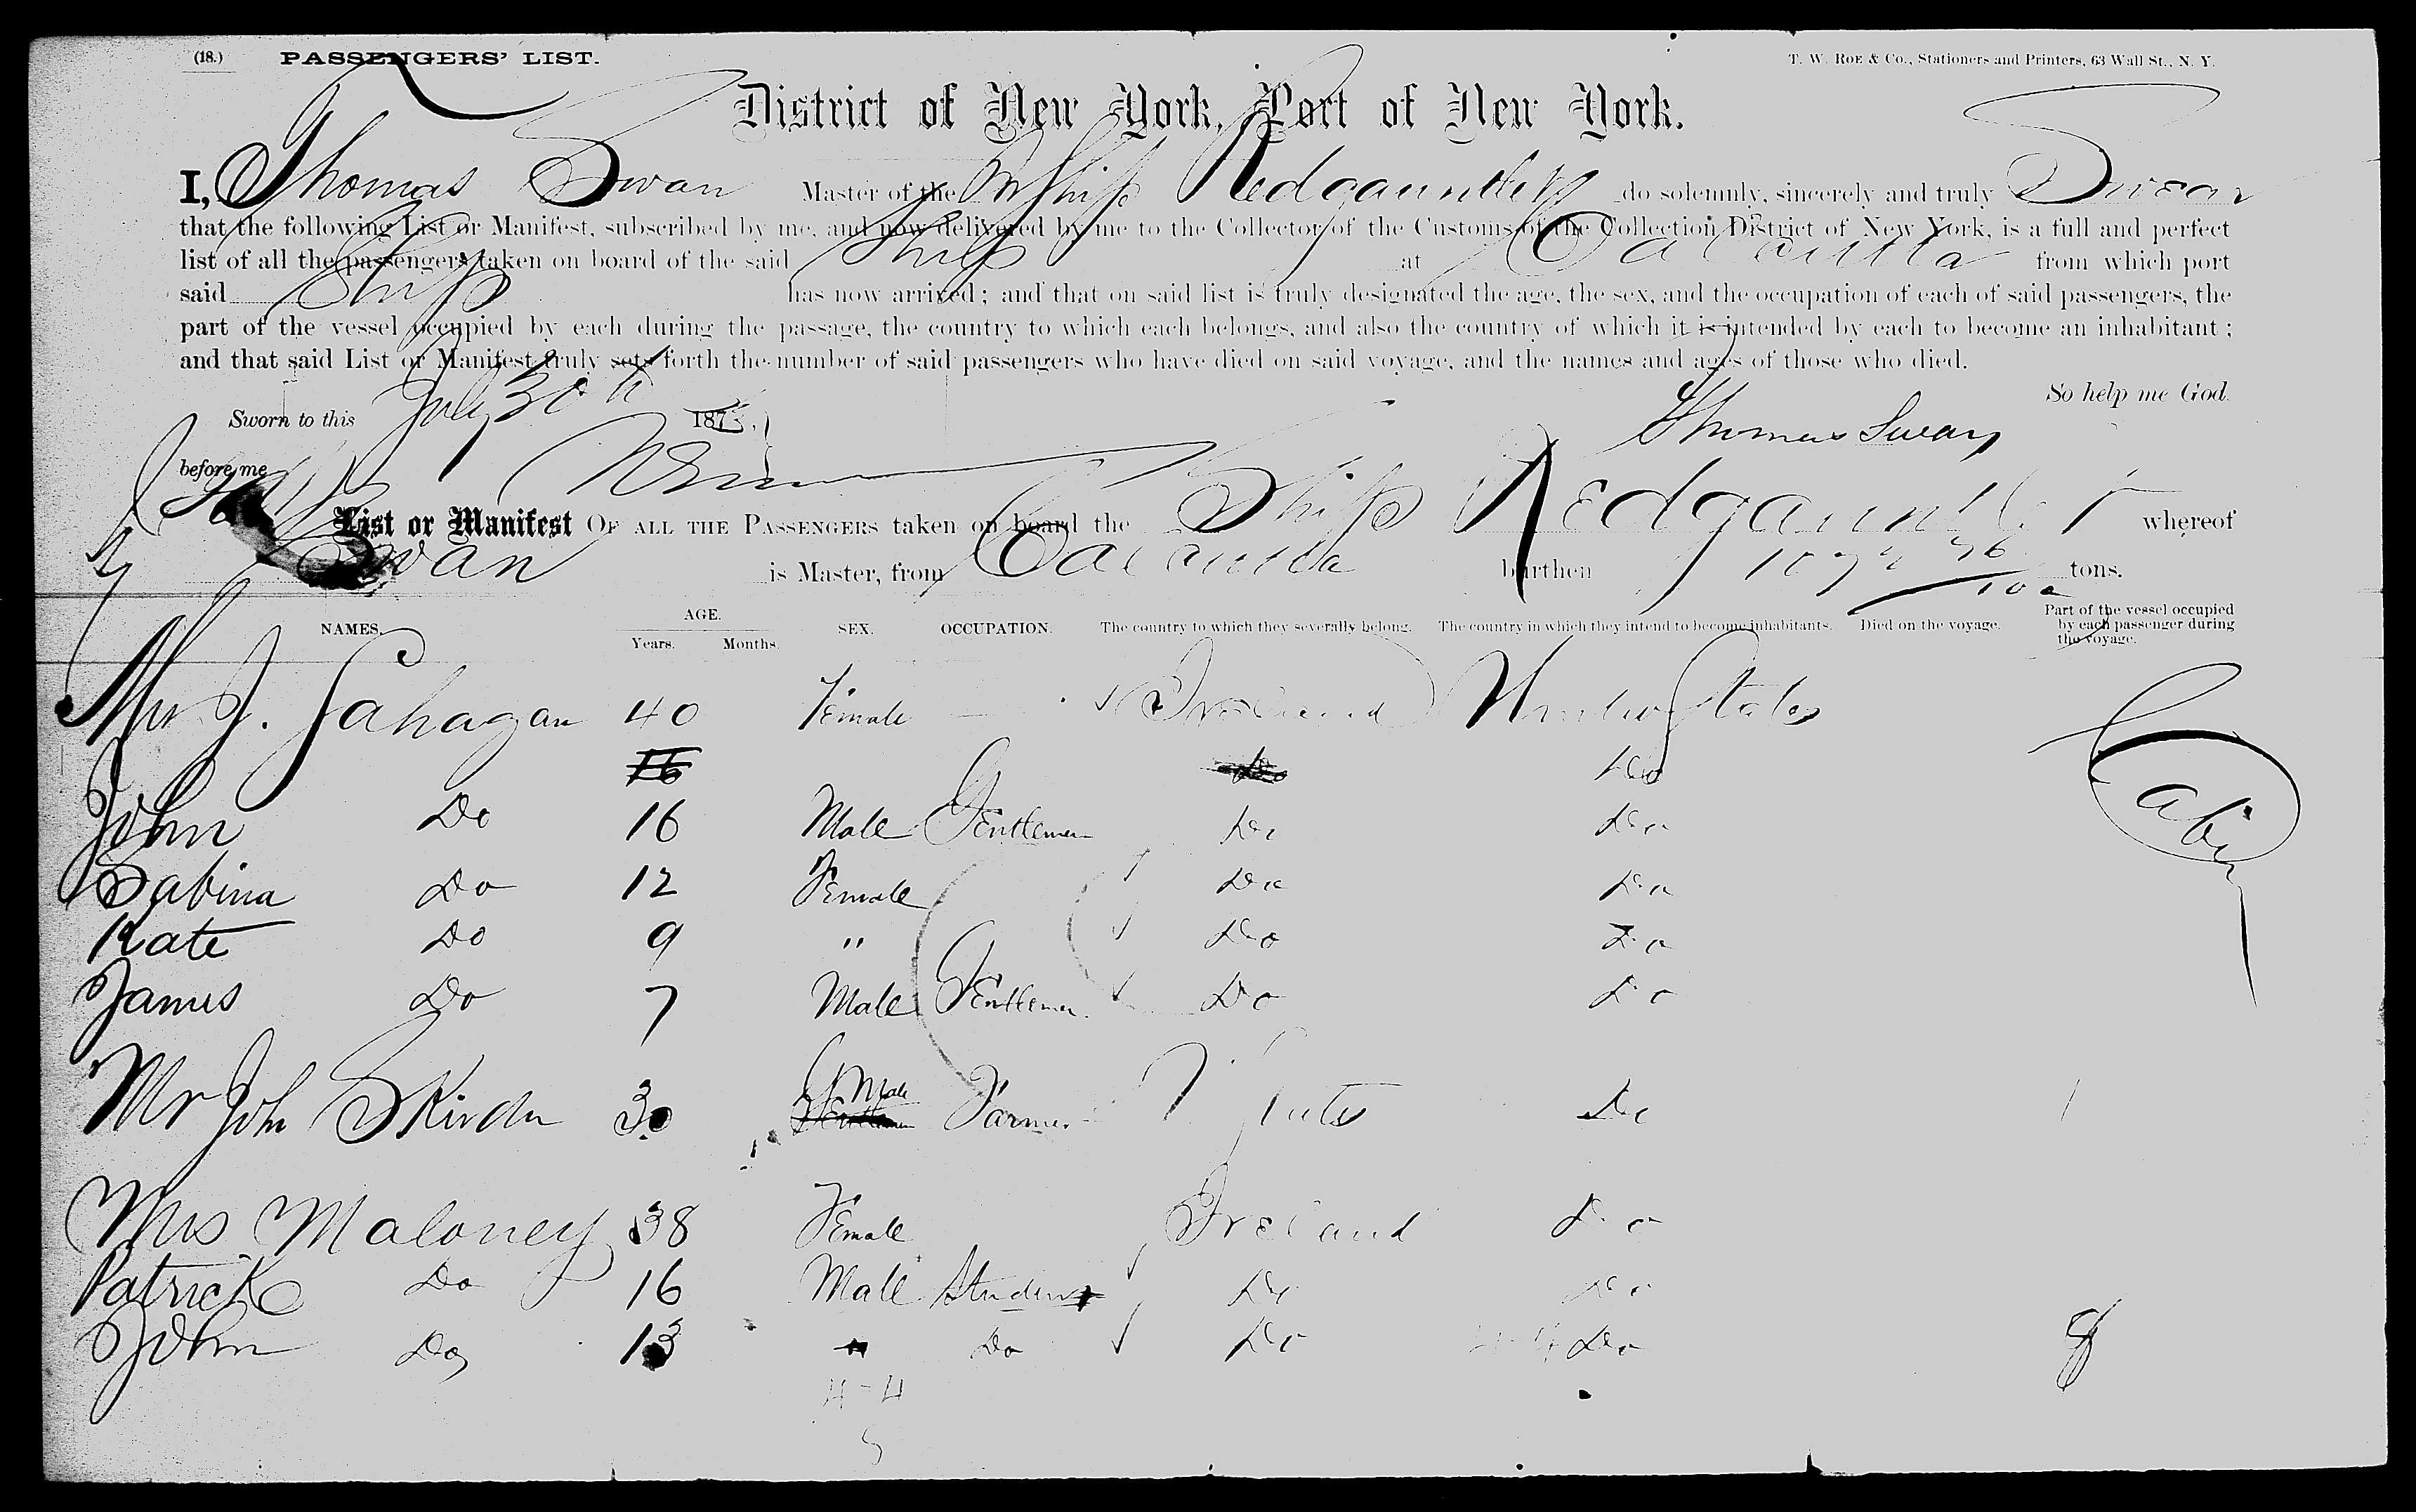 (18.) PASSENGERS' LIST. T. W. ROE & Co., Stationers and Printers, 63 Wall St., N. Y.
District of New York, Port of New York.
I, Thomas Swan Master of the Ship do solemnly, sincerely and truly Swear
that the following List or Manifest, subscribed by me, and now delivered by me to the Collector of the Customs of the Collection District of New York, is a full and perfect
list of all the passengers taken on board of the said Ship at Calcutta from which port
said Ship has now arrived; and that on said list is truly designated the age, the sex, and the occupation of each of said passengers, the
part of the vessel occupied by each during the passage, the country to which each belongs, and also the country of which it is intended by each to become an inhabitant;
and that said List or Manifest truly sets forth the number of said passengers who have died on said voyage, and the names and ages of those who died.
So help me God.
Sworn to this July 30th 187
Thomas Swan
before me
List or Manifest OF ALL THE PASSENGERS taken on board the Ship Redgauntlet whereof
Swan is Master, from Calcutta burthen tons.
NAMES. AGE. Years. Months. SEX. OCCUPATION. The country to which they severally belong. The country in which they intend to become inhabitants. Died on the voyage. Part of the vessel occupied by each passenger during the voyage.
J. Gahagan 40 Female Ireland United States
16 Do Do
John Do 16 Male Gentleman Do Do
Sabina Do 12 Female Do Do
Kate Do 9 " Do Do
James Do 7 Male Gentleman Do Do
Cabin
Mr John 30 Male Farmer Do
Mrs Maloney 38 Female Ireland Do
Patrick Do 16 Male Student Do Do
John Do 13 " Do Do Do